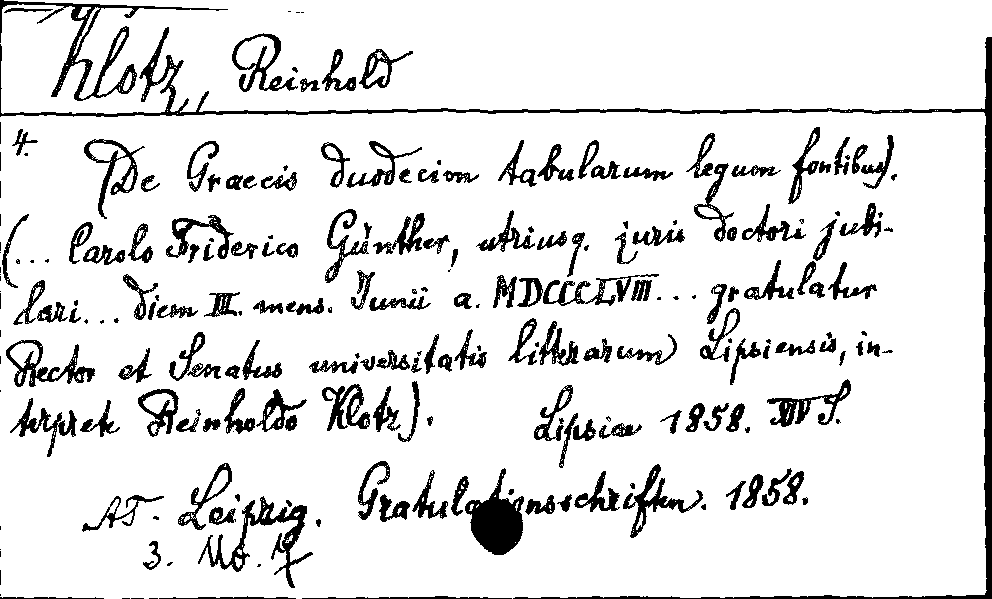 Klotz, Reinhold
4.
(De Graecis duodecim tabularum legum fontibus).
(... Carolo Friderico Günther, utriusq. juris doctori jubi-
lari... diem III. mens. Junii a. MDCCCLVIII... gratulatur
Rector et Senatus universitatis litterarum Lipsiensis, in-
terprete Reinholdo Klotz). Lipsiae 1858. XIV S.
AT. Leipzig. Gratulationsschriften. 1858.
3.